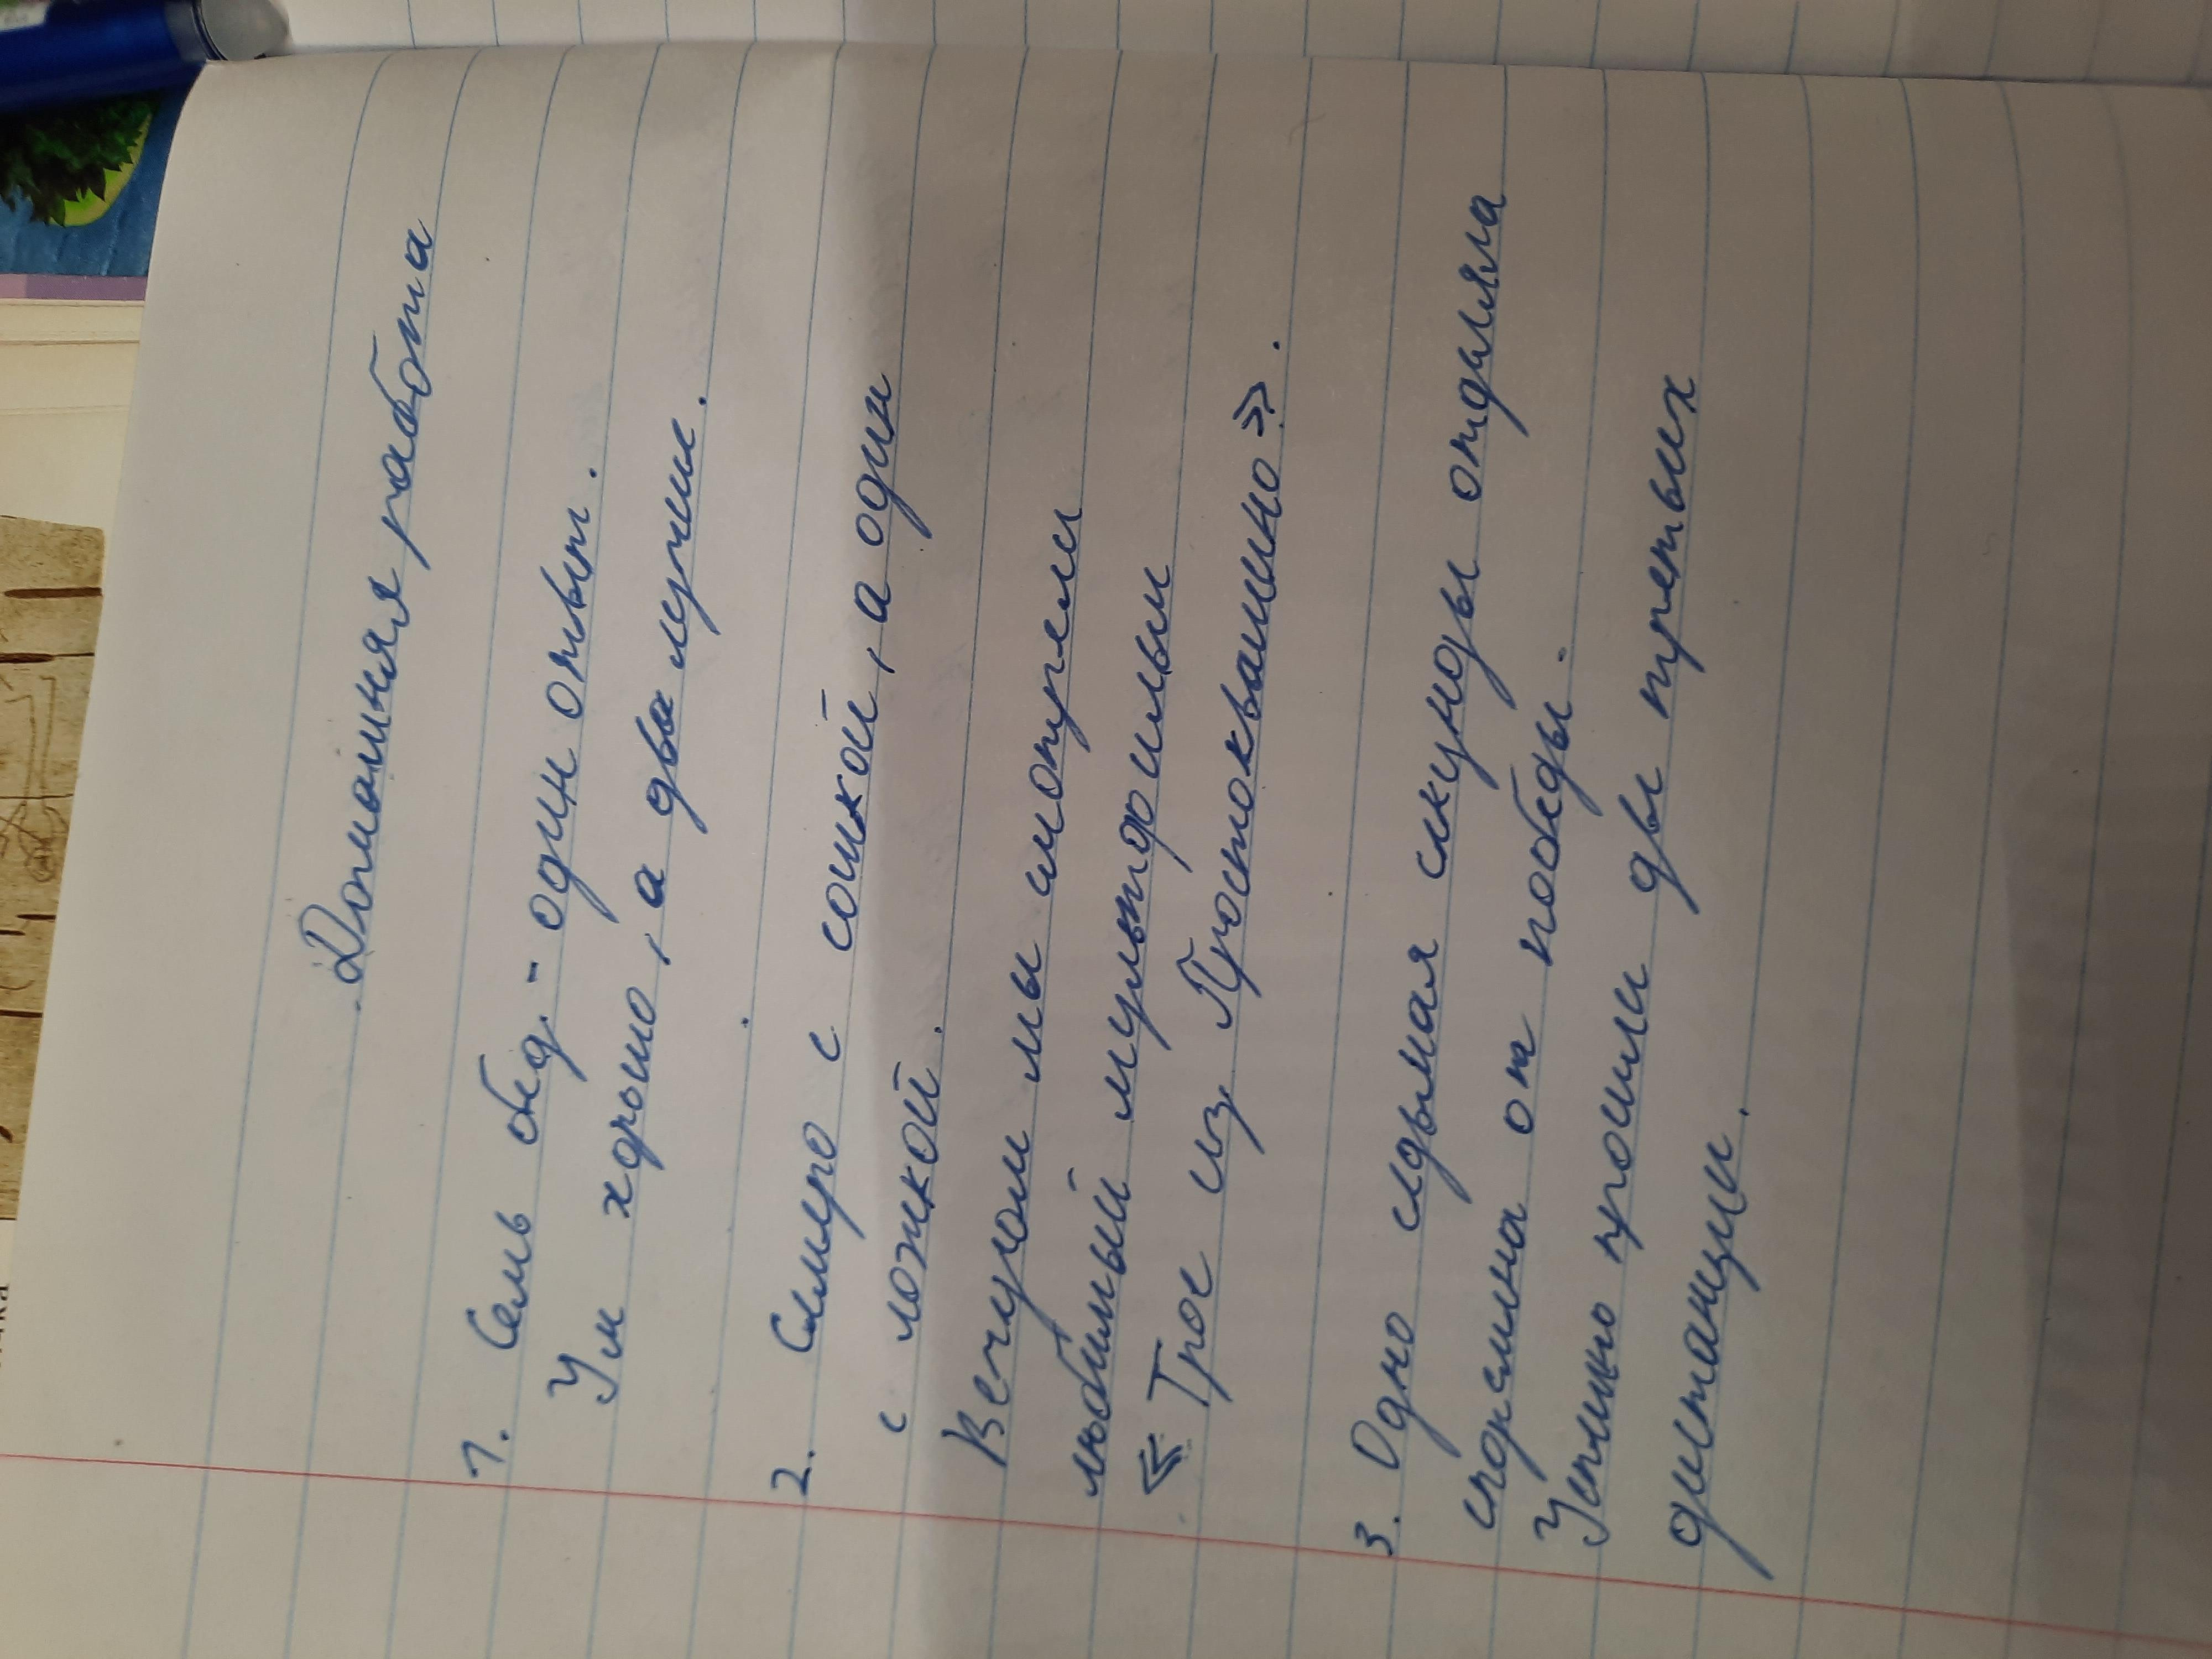 Домашняя работа
1. Семь бед - один ответ.
Ум хорошо, а два лучше.
2. Семеро с сошкой, а один
с ложкой.
Вечером мы смотрели
любимый мультфильм
« Трое из Простоквашино».
3. Одна седьмая секунды отделяла
спортсмена от победы.
Успешно прошли две третьих
дистанции.